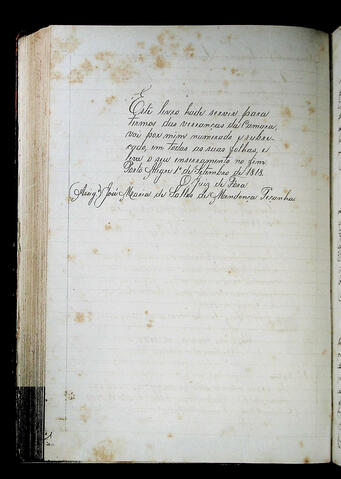 Este livro hade servir para
termos das vereanças da Camara,
vai por mim numerado e rubri-
cado, em todas as suas folhas, e
leva o seu encerramento no fim
Porto Alegre 1º de Setembro de 1818.
O Juiz de Fora
(Assigº) José Maria de Salles de Mendonça Peçanha